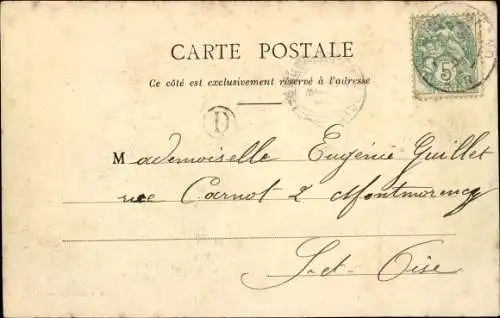 CARTE POSTALE
Ce côté est exclusivement réservé à l'adresse
D
Mademoiselle Eugénie Guillet
rue Carnot 2 Montmorency
S.-et-Oise
5